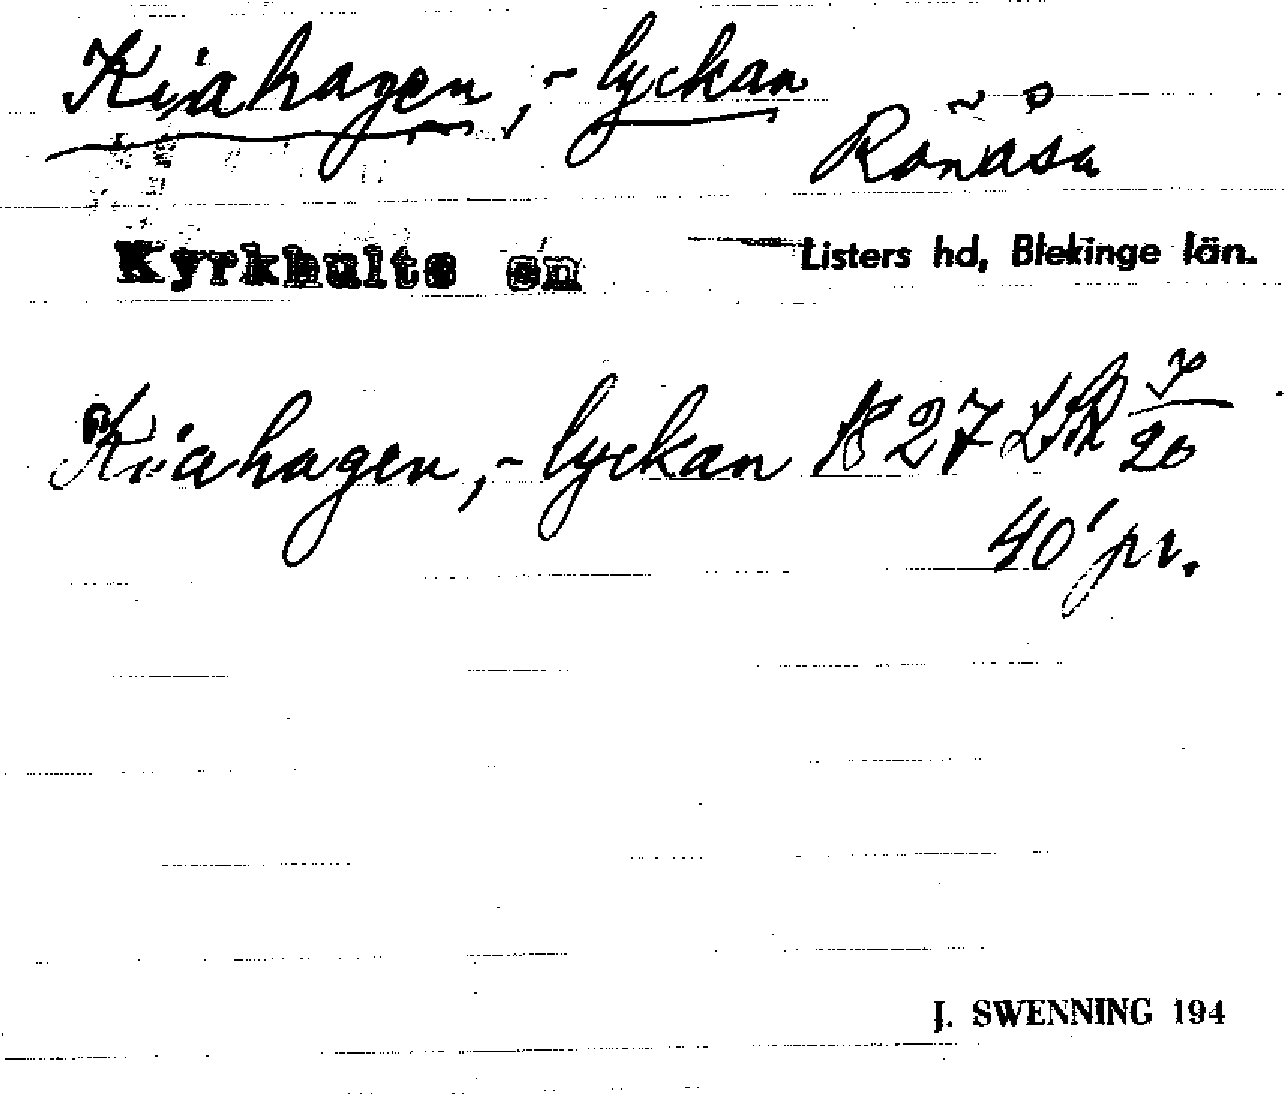 Kiahagen, - lyckan
Rönåsa
Kyrkhults sn Listers hd, Blekinge län.
Kiahagen, - lyckan 1827 LSR
20
40' pr.
J. SWENNING 194